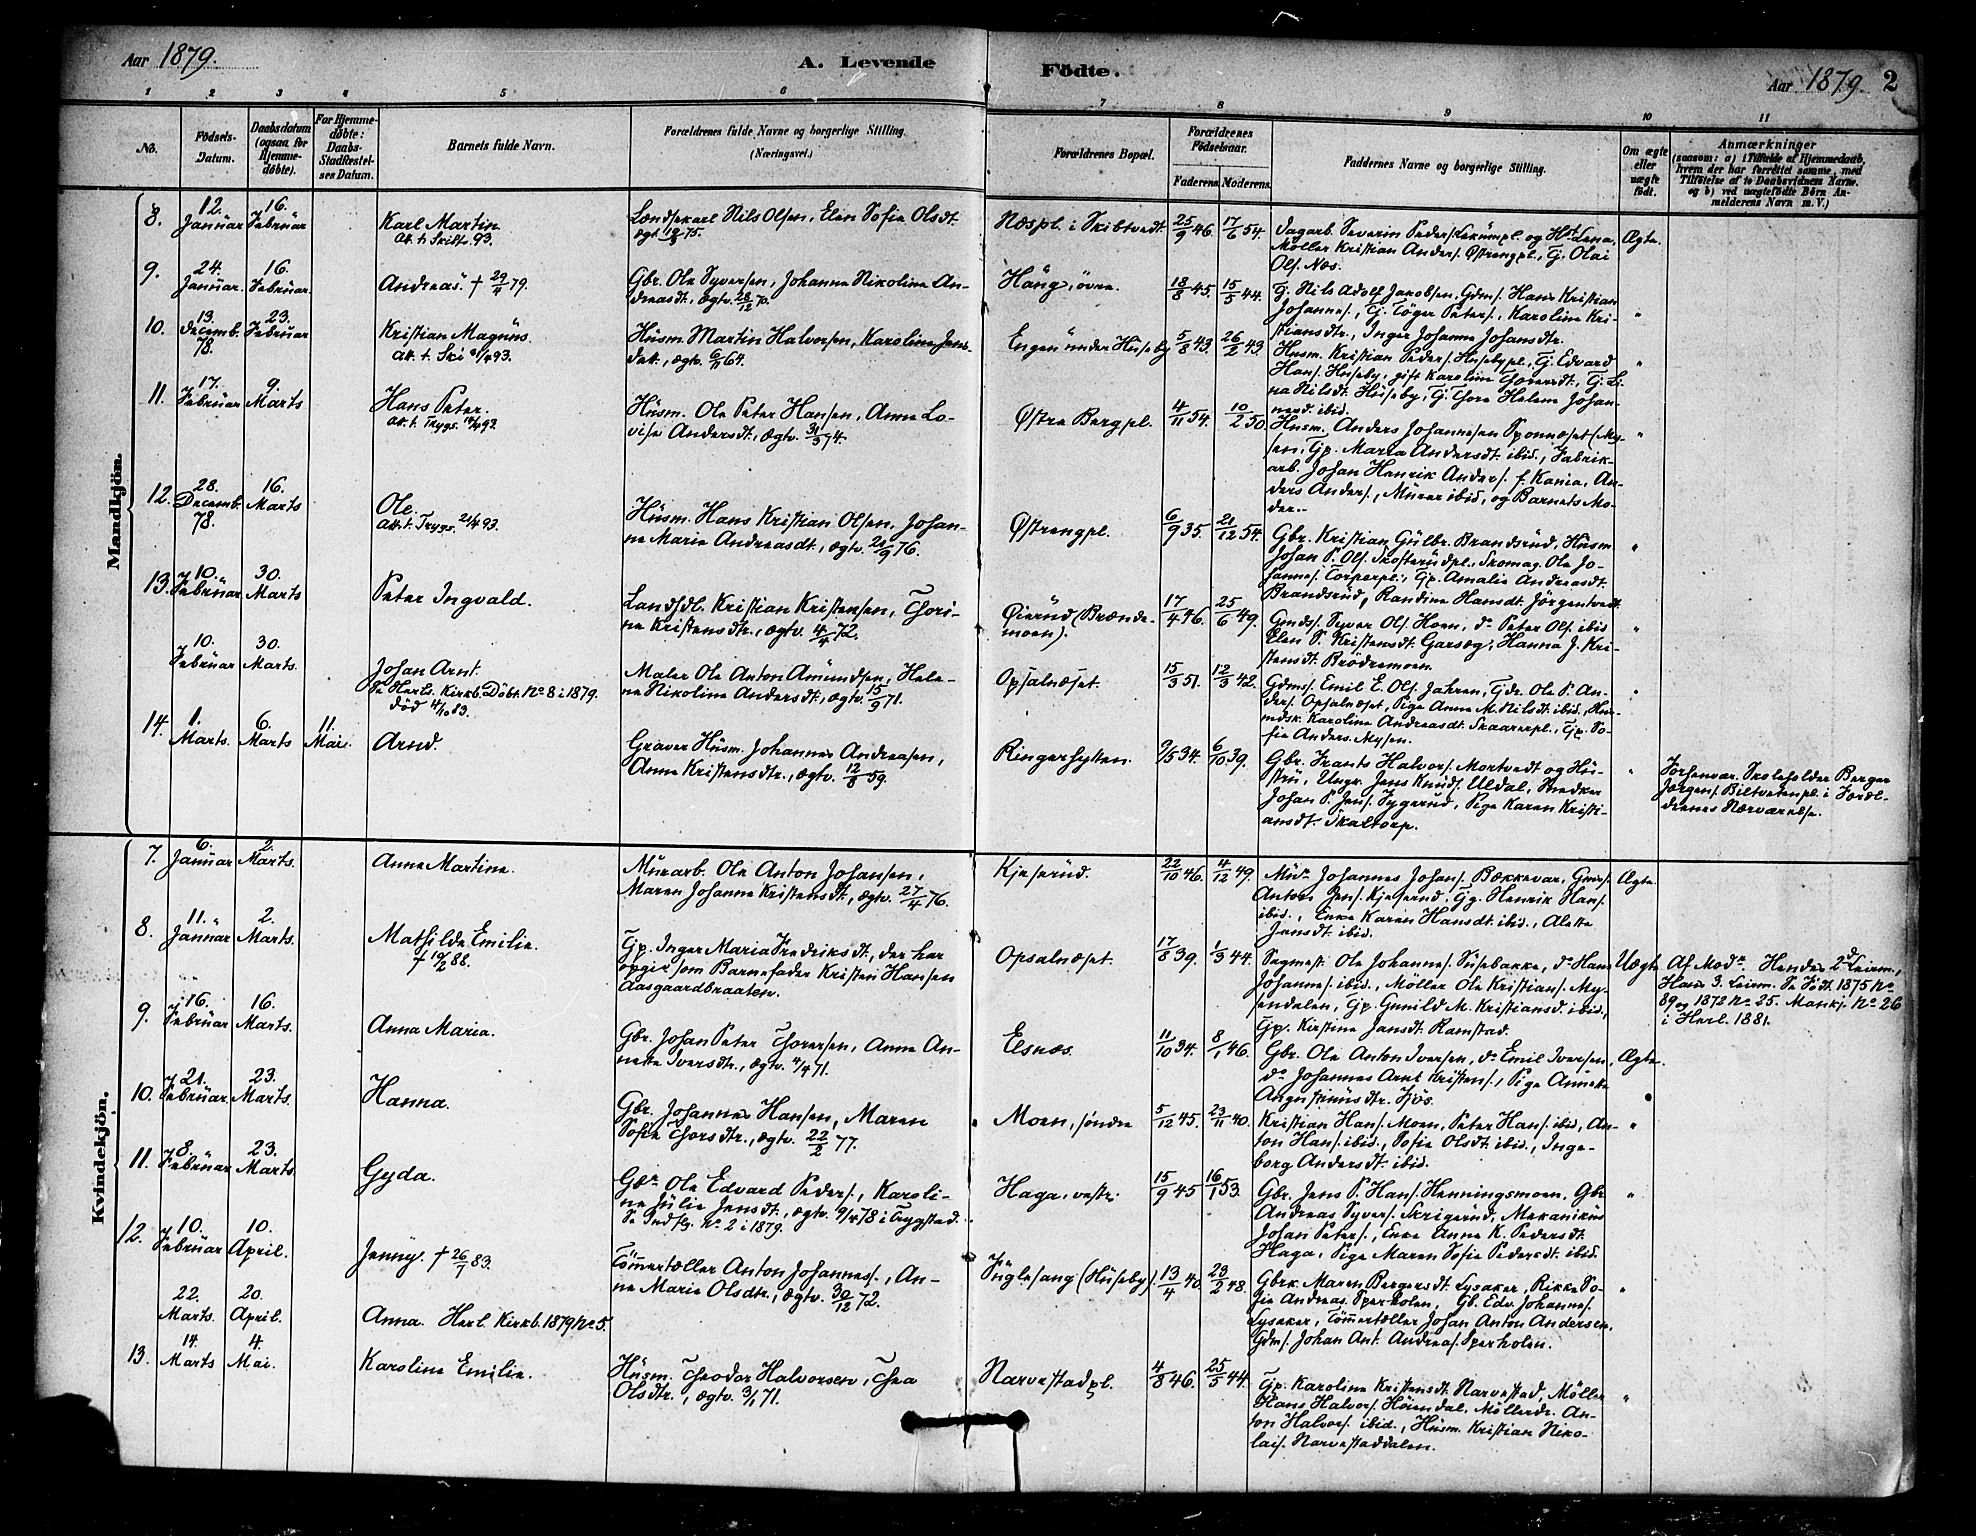 Aar 1879.
A. Levende
Födte.
Aar 1879. 2
1 2 3 4 5 6 7 8 9 10 11
No.
Födsels-
Datum.
Daabsdatum
(ogsaa for
Hjemme-
döbte).
For Hjemme-
döbte:
Daabs-
Stadfæstel-
ses Datum.
Barnets fulde Navn.
Forældrenes fulde Navne og borgerlige Stilling.
(Næringsvei.)
Forældrenes Bopæl.
Forældrenes
Födselsaar.
Faderens. Moderens.
Faddernes Navne og borgerlige Stilling.
Om ægte
eller
uægte
födt.
Anmærkninger
(saasom: a) i Tilfælde af Hjemmedaab,
hvem der har forrettet samme, med
Tilföielse af to Daabsvidners Navne.
og b) ved uægtefödte Börn An-
melderens Navn m. V.)
Mandkjön.
8. 12. Januar 16. Februar
Karl Martin
Nils Olsen, Elen Sofie Olsdt.
Næspl. i Skibtvedt 25/9 46. 17/6 54.
Dagarb. Severin Peders. og Lena,
Möller Kristian Anders. Østrengpl., Olai
Ols. Næs.
Ægte
9. 24. Januar. 16. Februar.
Andreas. † 29/4 79.
Gbr. Ole Syversen, Johanne Nikoline An-
dreasdt., ægtv. 28/12 70.
Haug, övre. 18/8 45. 15/5 44.
Nils Adolf Jakobsen, Gdms. Hans Kristian
Johannes., Peters., Karoline Kri-
stiansdtr., Inger Johanne Johansdtr.
"
10. 13. Decemb. 78. 23. Februar
Kristian Magnus.
Husm. Martin Halvorsen, Karoline Jens-
datt., ægtv. 64.
Engen under Huseby 5/8 43. 26/2 43.
Husm. Kristian Peders. Husebypl., Edvard
Hans. Huseby, gift Karoline
Nilsdt. Huseby, Helene Johan-
nesd. ibid.
"
11. 17. Februar 9. Marts
Hans Peter.
Husm. Ole Peter Hansen, Anne Lo-
vise Andersdt., ægtv. 31/3 74.
Østre Bergpl. 4/11 54. 10/2 50.
Husm. Anders Johannesen Sponnæset (My-
sen, Maria Andersdt. ibid., Fabrik-
arb. Johan Henrik Anders. f. Kania, An-
ders Anders., Murer ibid, og Barnets Mo-
der.
"
12. 28. Decemb. 78. 16. Marts
Ole.
Husm. Hans Kristian Olsen, Johan-
ne Marie Andreasdt., ægtv. 76.
Østrengpl. 6/9 35. 21/12 54.
Gbr. Kristian Gulbr. Brandsrud, Husm.
Johan P. Ols. Skofterudpl., Skomag. Ole Jo-
hannes. Torperpl., Amalie Andreasdt.
Brandsrud, Randine Hansdt. Jörgentvedt.
"
13. 10. Februar 30. Marts
Peter Ingvald.
Landhdl. Kristian Kristensen, Thori-
ne Kristensdtr., ægtv. 4/4 72.
Øierud (Brænde-
moen). 17/4 46. 25/6 49.
Syver Ols. Hoen, do Peter Ols. ibid
Elen P. Kristensdt. Garseg, Hanna J. Kri-
stensdt. Brödremoen.
"
10. Februar 30. Marts.
Johan Arnt.
Se Herl. Kirkb. Döbt. No 8 i 1879.
död 4/10 83.
Maler Ole Anton Amundsen, Hele-
ne Nikoline Andersdt., ægtv. 15/9 71.
Opsalnæset. 15/3 51. 12/3 42.
Gdms. Emil E. Ols. Jahren, Ole P. An-
ders. Opsalnæset, Pige Anne M. Nilsdt. ibid.,
Karoline Andreasdt. Skaarerpl., So-
fie Anders. Mysen.
"
14. 1. Marts. 6. Marts 11. Mai.
Arnd.
Graver Husm. Johannes Andreasen,
Anne Kristensdtr., ægtv. 12/8 59.
Ringerhytten. 9/5 34. 6/10 39.
Gbr. Frants Halvors. Mortvedt og Hu-
stru, Ungk. Jens Knuds. Uldal, Snedker
Johan P. Jens. Pige Karen Kristi-
ansdt. Skaltorp.
"
Forhenvær. Skoleholder Berger
Jörgens. i Foræl-
drenes Nærværelse.
Kvindekjön.
7. 6. Januar 2. Marts.
Anne Martine.
Murarb. Ole Anton Johansen,
Maren Johanne Kristensdt., ægtv. 27/4 76.
Kjeserud. 22/10 46. 4/12 49.
Johannes Johans. Bækkevar,
Anton Jens. Kjeserud, Henrik Hans.
ibid., Enke Karen Hansdt. ibid., Alette
Jensdt. ibid.
Ægte
8. 11. Januar 2. Marts.
Mathilde Emilie.
† 88.
Inger Maria Fredriksdt., der har
opgiv. som Barnefader Kristen Hansen
Aasgaardbraaten.
Opsalnæset. 17/8 39. 1/3 44.
Ole Johannes. Susebakke, do Hans
Johannes. ibid., Möller Ole Kristians. My-
sendalen, Gunild M. Kristiansd. ibid.,
Kirstine Jansdt. Ramstad.
Uægte
Af Modr. Hendes 2d Leierm.,
Hans 3. Leierm. Se Födt. 1875 No
89 og 1872 No 25. Mankj. No 26
i Herl. 1881.
9. 16. Februar 16. Marts.
Anna Maria.
Gbr. Johan Peter Thoresen, Anne An-
nette Iversdtr., ægtv. 4/4 71.
Elsnæs. 11/10 34. 8/1 46.
Gbr. Ole Anton Iversen, do Emil Iversen,
do Johannes Arnt Kristens., Pige Annette
Augustinusdtr. Sjös.
Ægte.
10. 21. Februar. 23. Marts.
Hanna.
Gbr. Johannes Hansen, Maren
Sofie Thorsdtr., ægtv. 22/2 77.
Moen, söndre 5/12 45. 23/11 40.
Kristian Hans. Moen, Peter Hans. ibid, An-
ton Hans. ibid., Sofie Olsdt. ibid., Inge-
borg Andersdt. ibid.
"
11. 8. Februar 23. Marts
Gyda.
Ole Edvard Peders., Karoli-
ne Julie Jensdt., ægtv. 9/4 78 i Trygstad.
Se Indfl. No 2 i 1879.
Haga, vestr. 15/9 45 16/1 53.
Gbr. Jens P. Hans. Henningsmoen, Gbr.
Andreas Syvers. Skrigerud, Mekanikus
Johan Peters., Enke Anne K. Pedersdt.
Haga, Pige Maren Sofie Pedersdt. ibid.
"
12. 10. Februar 10. April.
Jenny. † 26/7 83.
Tömmertæller Anton Johannes., An-
ne Marie Olsdtr., ægtv. 30/12 72.
Fuglesang (Huseby). 13/4 40. 23/2 48.
Gbrk. Maren Bergersdt. Lysaker, Rikke So-
fie Andreas. Sperholen, Gb. Edv. Johannes.
Lysaker, Tömmertæller Johan Anton Andersen,
Gdms. Johan Ant. Andreas. Sperholen.
"
22. Marts. 20. April.
Anna. Herl. Kirkb. 1879 No 5.
13. 14. Marts 4. Mai.
Karoline Emilie.
Husm. Theodor Halvorsen, Thea
Olsdtr., ægtv. 3/1 71.
Narvestadpl. 4/8 46. 25/5 44.
Karoline Kristensdt. Narvestad, Möller
Hans Halvors. Höiendal, Möllerdr. An-
ton Halvors. ibid., Husm. Kristian Niko-
lais. Narvestaddalen.
"